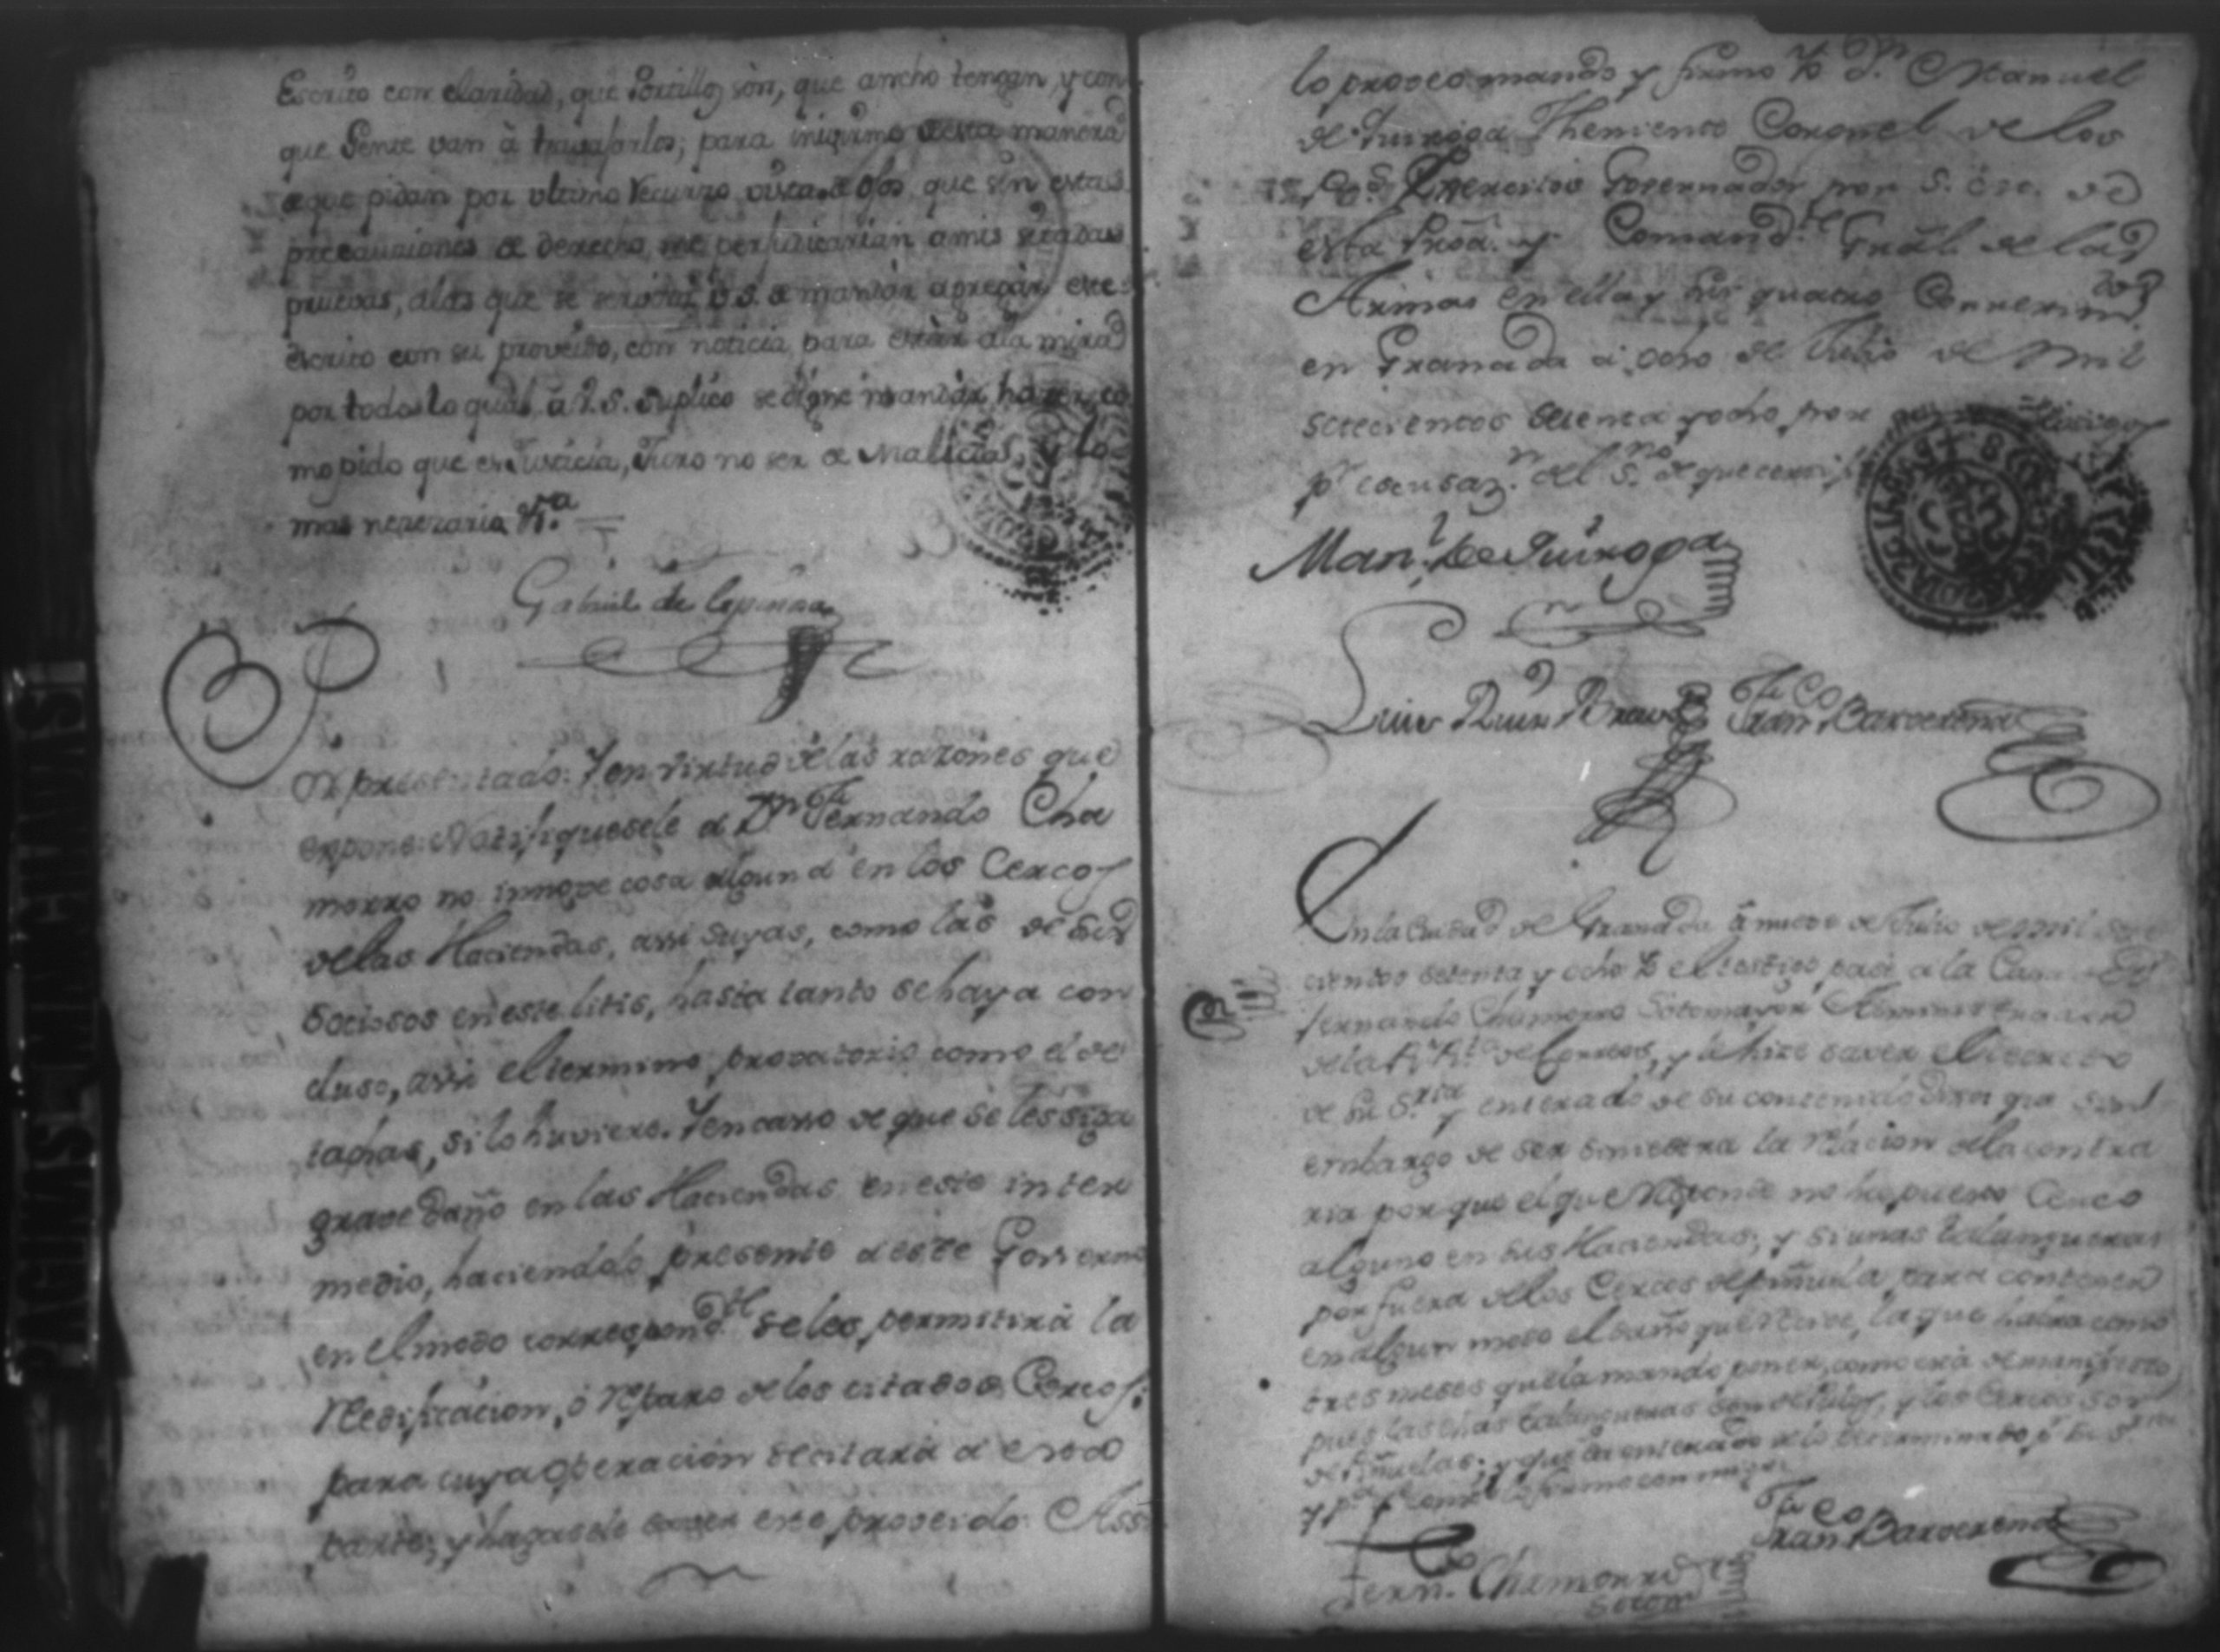 Escrito con claridad, que Portillos són, que ancho tengan, y con
que Gente van â travajarlos; para inquirime desta manera
aque pidan por ultimo recurzo vista de ojos que sin estas
precauciones de derecho, me perjuicarian amis citadas
pruevas, alas que se servirá V.S. de mandar agregar este
escrito con su proveido, con noticia para estàr ala mira
por todo lo qual â V.S. suplico se digne mandar hazer co
mo pido que es Justicia, Juro no ser de Malicia, y lo
mas nezezaria &.a
Gabriel de Espinosa
Por presentado: Y en virtud de las razones que
expone: Notifiquesele a Dn. Fernando Cha
morro no innove cosa alguna en los Cercos
de las Haciendas, assi suyas, como las de sus
Sociosos en este litis, hasta tanto se haya con
cluso, assi el termino provatorio como el de
tachas, si lo huviere. Y en caso de que se les siga
grave daño en las Haciendas en este inter
medio, haciendolo presente a este Govierno
en el modo correspond.te se les permitirá la
Redificacion, ó Reparo de los citados Cercos:
para cuya operacion se citará a esta
parte; y hagasele saver este proveido. Assi
lo proveo mando y firmo Yo Dn. Manuel
de Quiroga Theniente Coronel de los
Rs. Exercitos Governador por S. M. de
esta Prov.a y Comand.te Gral. de las
Armas en ella y sus quatro Correxim.tos
en Granada â ocho de Julio de mil
setecientos setenta y ocho por
pr. escusaz.n del S.no de que certi
Man.l de Quiroga
Luis Ruiz Bravo Fran.co Barberena
En la Ciudad de Granada â nueve de Julio de mil sete
cientos setenta y ocho Yo el testigo, pasé a la Casa de Dn.
Fernando Chamorro Sotomayor Administrador
de la Rl. Rta. de Correos, y le hize saver el decreto
de su S.ria y enterado de su contenido dixo que sin
embargo de ser siniestra la relacion de la contra
ria por que el que Responde no ha puesto Cerco
alguno en sus Haciendas; y si unas talanqueras
por fuera de los Cercos de piñuela para contener
en algun modo el daño que recive, la que habra como
tres meses que la mando poner, como está de manifiesto
pues las dhas talanqueras son de Palos, y los Cercos son
de Piñuelas; y que da enterado de lo determinado pr. su S.ria
y pa. q conste lo firmo con migo
Fern. Chamorro Fran.co Barberena
Sotom.